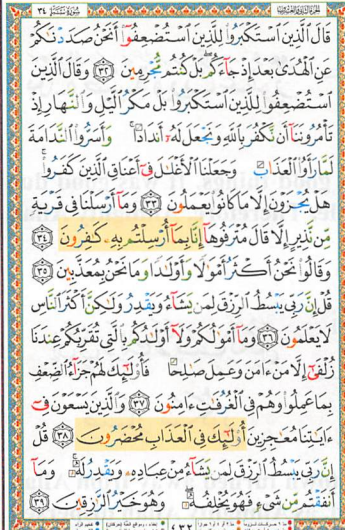 سُورَةُ سَبَإٍ ٣٤
قَالَ الَّذِينَ اسْتَكْبَرُوا لِلَّذِينَ اسْتُضْعِفُوا أَنَحْنُ صَدَدْنَاكُمْ
عَنِ الْهُدَىٰ بَعْدَ إِذْ جَاءَكُم بَلْ كُنتُم مُّجْرِمِينَ ٣٢ وَقَالَ الَّذِينَ
اسْتُضْعِفُوا لِلَّذِينَ اسْتَكْبَرُوا بَلْ مَكْرُ الَّيْلِ وَالنَّهَارِ إِذْ
تَأْمُرُونَنَا أَن نَّكْفُرَ بِاللَّهِ وَنَجْعَلَ لَهُ أَندَادًا وَأَسَرُّوا النَّدَامَةَ
لَمَّا رَأَوُا الْعَذَابَ وَجَعَلْنَا الْأَغْلَالَ فِي أَعْنَاقِ الَّذِينَ كَفَرُوا
هَلْ يُجْزَوْنَ إِلَّا مَا كَانُوا يَعْمَلُونَ ٣٣ وَمَا أَرْسَلْنَا فِي قَرْيَةٍ
مِّن نَّذِيرٍ إِلَّا قَالَ مُتْرَفُوهَا إِنَّا بِمَا أُرْسِلْتُم بِهِ كَافِرُونَ ٣٤
وَقَالُوا نَحْنُ أَكْثَرُ أَمْوَالًا وَأَوْلَادًا وَمَا نَحْنُ بِمُعَذَّبِينَ ٣٥
قُلْ إِنَّ رَبِّي يَبْسُطُ الرِّزْقَ لِمَن يَشَاءُ وَيَقْدِرُ وَلَٰكِنَّ أَكْثَرَ النَّاسِ
لَا يَعْلَمُونَ ٣٦ وَمَا أَمْوَالُكُمْ وَلَا أَوْلَادُكُم بِالَّتِي تُقَرِّبُكُمْ عِندَنَا
زُلْفَىٰ إِلَّا مَنْ ءَامَنَ وَعَمِلَ صَالِحًا فَأُولَٰئِكَ لَهُمْ جَزَاءُ الضِّعْفِ
بِمَا عَمِلُوا وَهُمْ فِي الْغُرُفَاتِ ءَامِنُونَ ٣٧ وَالَّذِينَ يَسْعَوْنَ فِي
ءَايَاتِنَا مُعَاجِزِينَ أُولَٰئِكَ فِي الْعَذَابِ مُحْضَرُونَ ٣٨ قُلْ
إِنَّ رَبِّي يَبْسُطُ الرِّزْقَ لِمَن يَشَاءُ مِنْ عِبَادِهِ وَيَقْدِرُ لَهُ وَمَا
أَنفَقْتُم مِّن شَيْءٍ فَهُوَ يُخْلِفُهُ وَهُوَ خَيْرُ الرَّازِقِينَ ٣٩
٤٣٢